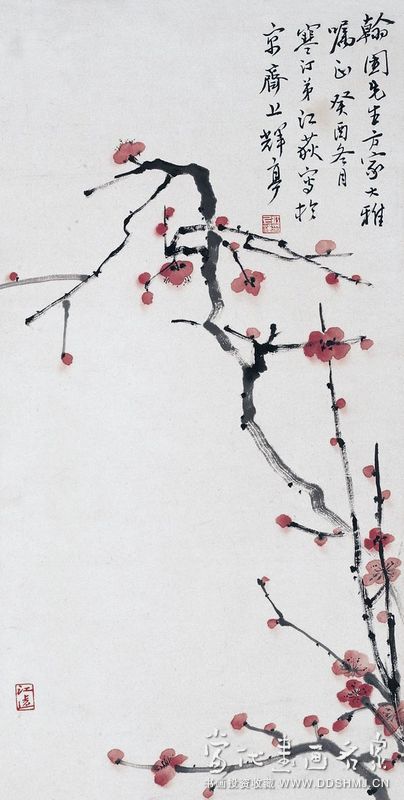 翰園先生方家大雅
囑正癸酉冬月
寒汀弟江荻寫於
京齋上輝亭
当代书画名家
书画投资收藏 WWW.DDSHMJ.CN